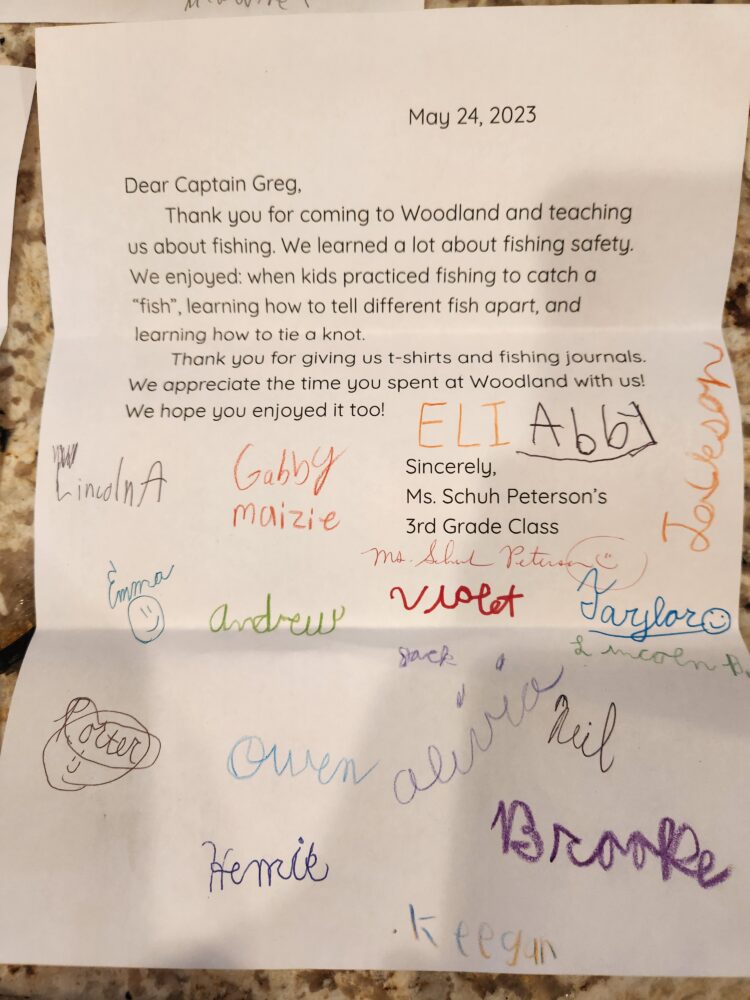 May 24, 2023
Dear Captain Greg,
Thank you for coming to Woodland and teaching
us about fishing. We learned a lot about fishing safety.
We enjoyed: when kids practiced fishing to catch a
“fish”, learning how to tell different fish apart, and
learning how to tie a knot.
Thank you for giving us t-shirts and fishing journals.
We appreciate the time you spent at Woodland with us!
We hope you enjoyed it too!
ELI Abby
Jackson
Lincoln A
Gabby
maizie
Sincerely,
Ms. Schuh Peterson’s
3rd Grade Class
Ms. Schuh Peterson
Emma
Andrew
Violet
Taylor
Jack
Lincoln B.
Porter
Owen
Olivia
Neil
Brooke
Henrik
Keegan